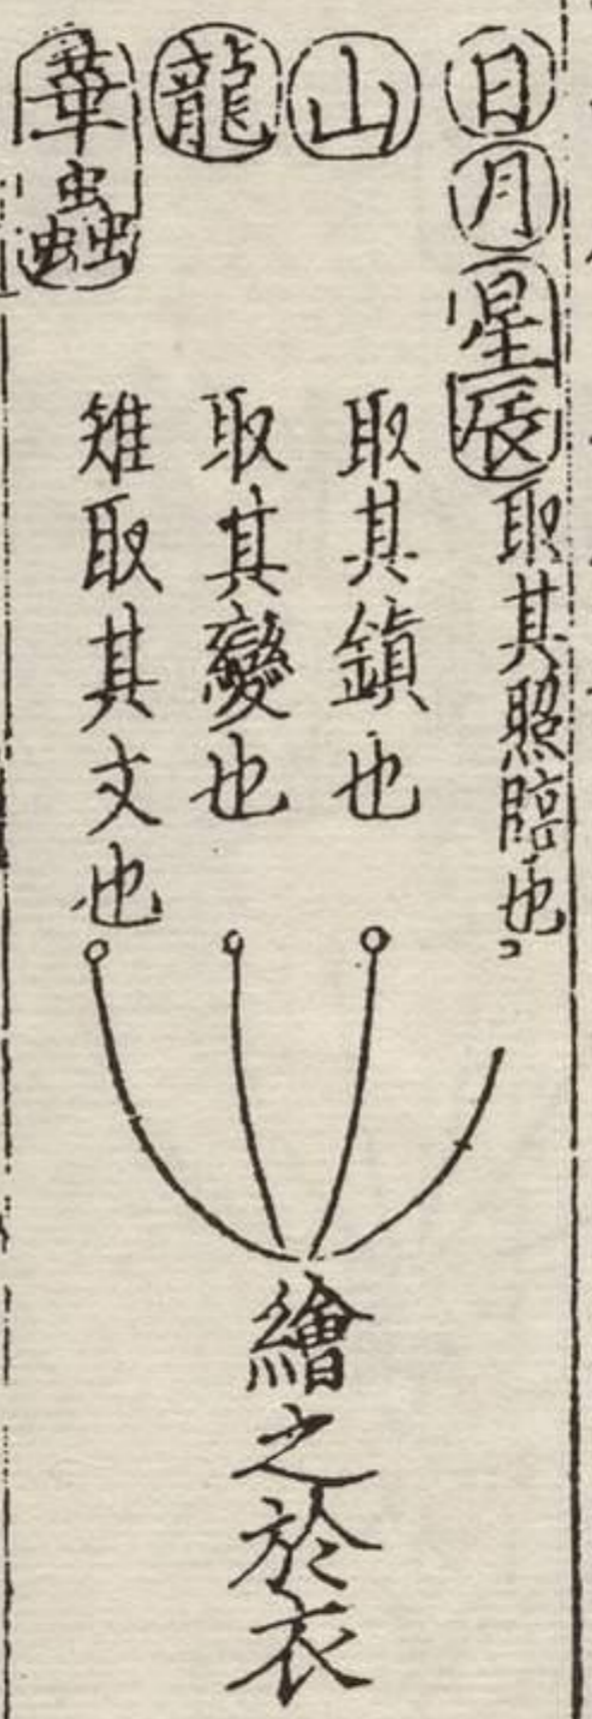 日月星辰取其照臨也
山取其鎮也
龍取其變也
華蟲雉取其文也
繪之於衣